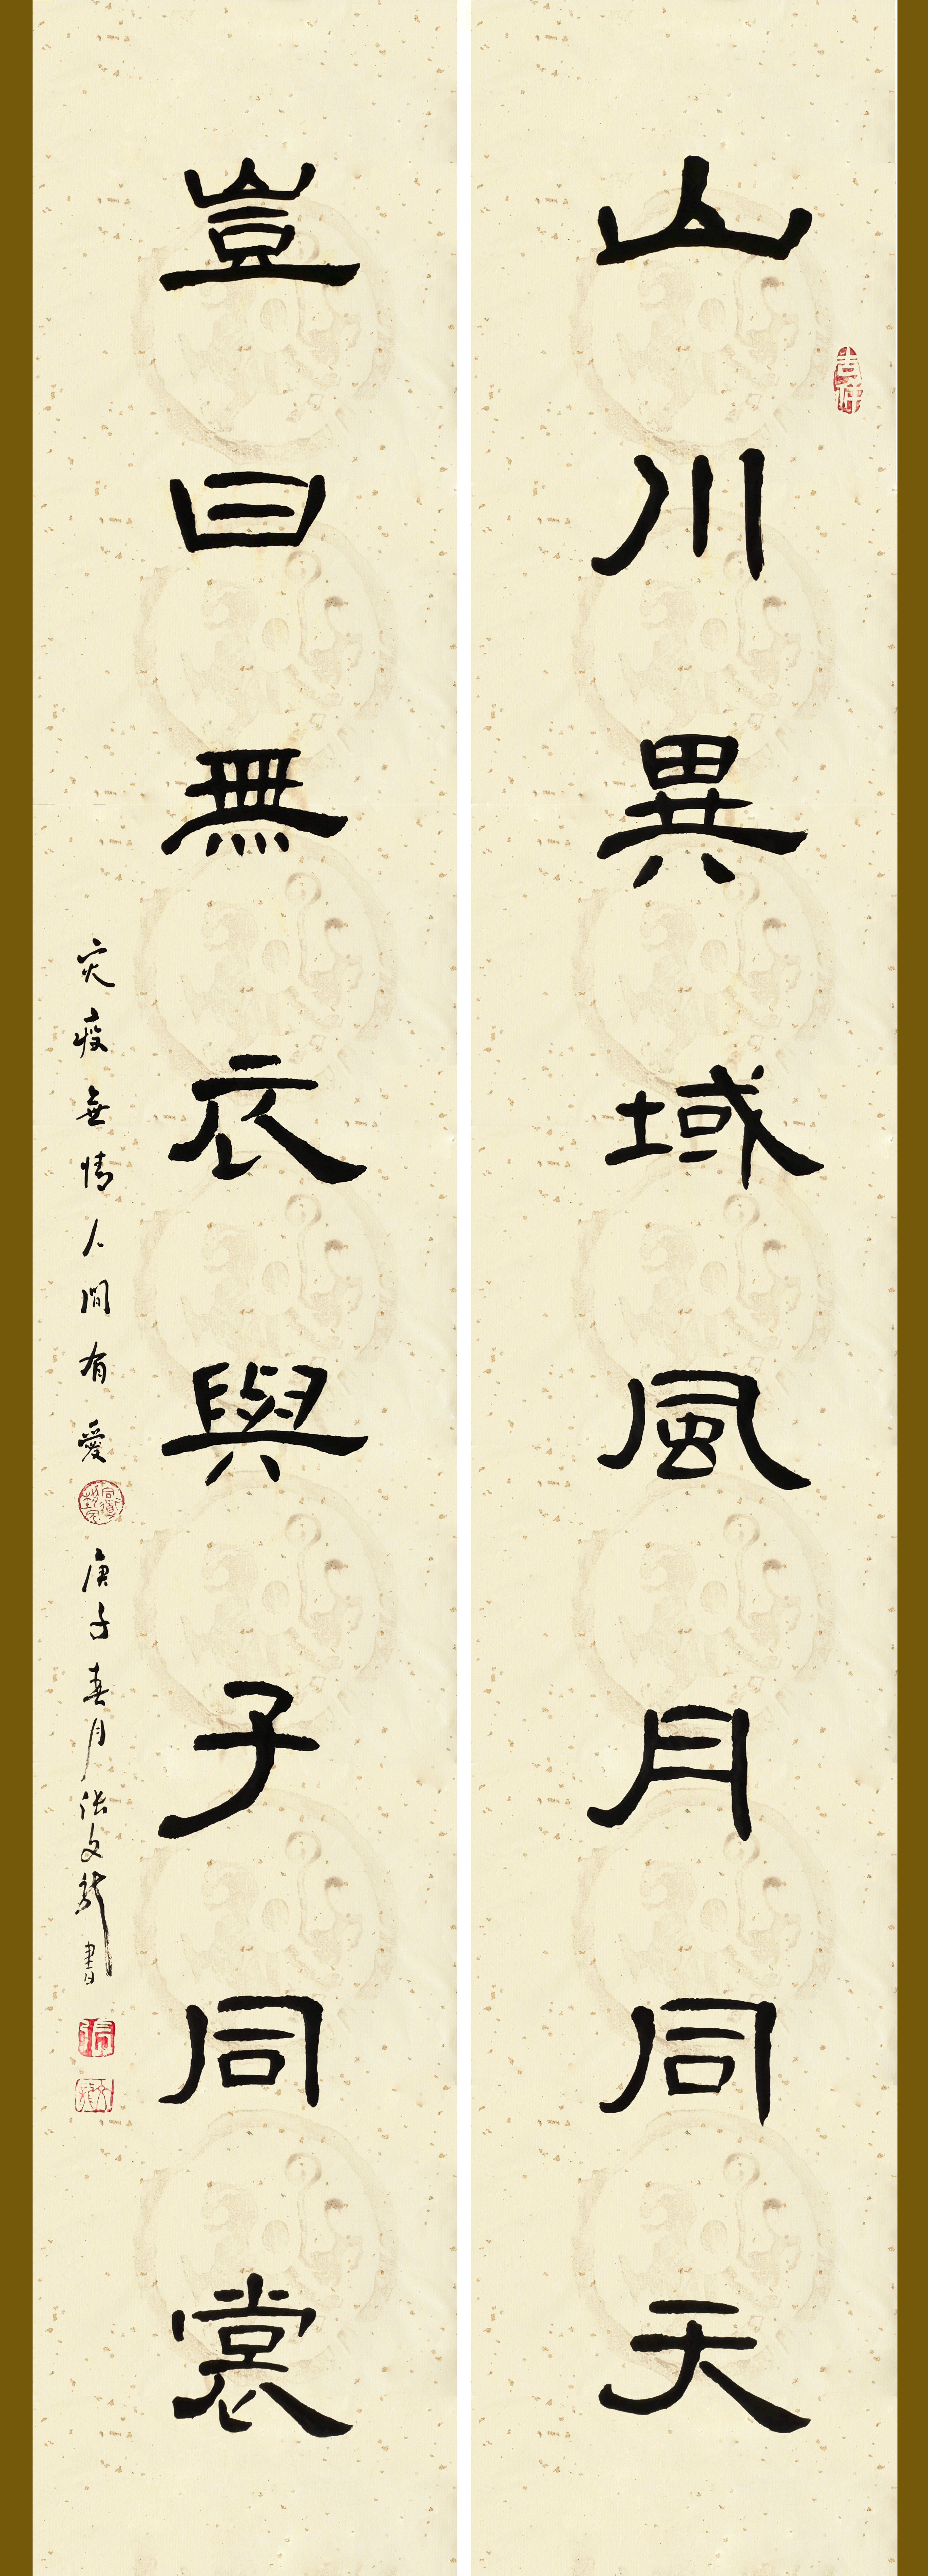 山川異域風月同天
吉祥
豈曰無衣與子同裳
災疫無情人間有愛
庚子春月張文龍書